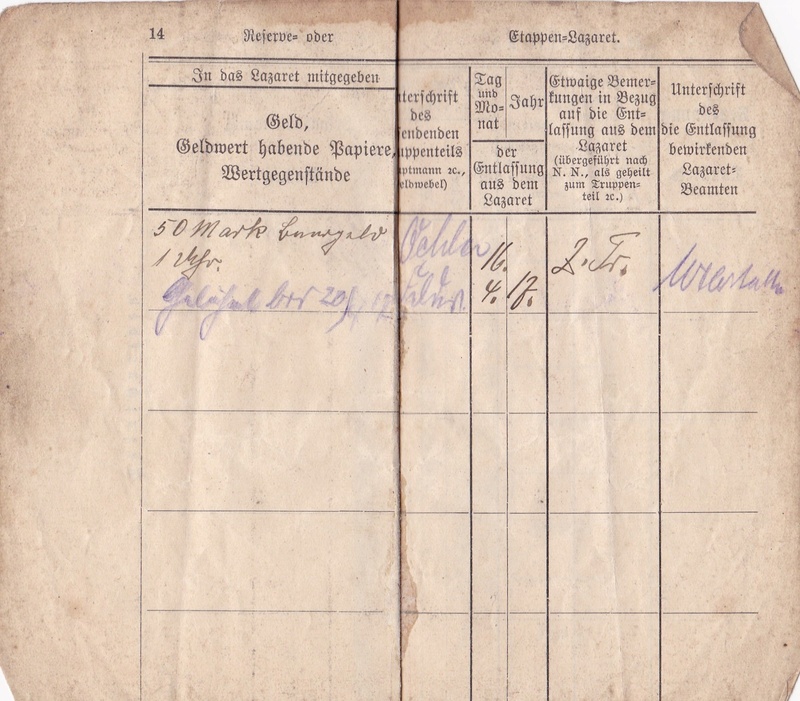 14 Reserve- oder Etappen-Lazaret.
In das Lazaret mitgegeben
Geld,
Geldwert habende Papiere,
Wertgegenstände
nterschrift
des
endenden
uppenteils
uptmann ꝛc.,
eldwebel)
Tag
und
Mo-
nat
Jahr
der
Entlassung
aus dem
Lazaret
Etwaige Bemer-
kungen in Bezug
auf die Ent-
lassung aus dem
Lazaret
(übergeführt nach
N. N., als geheilt
zum Truppen-
teil ꝛc.)
Unterschrift
des
die Entlassung
bewirkenden
Lazaret-
Beamten
50 Mark Baargeld
1 Uhr.
Gelöhnt bis 20/
Oehler
16.
4. 17.
z. Tr.